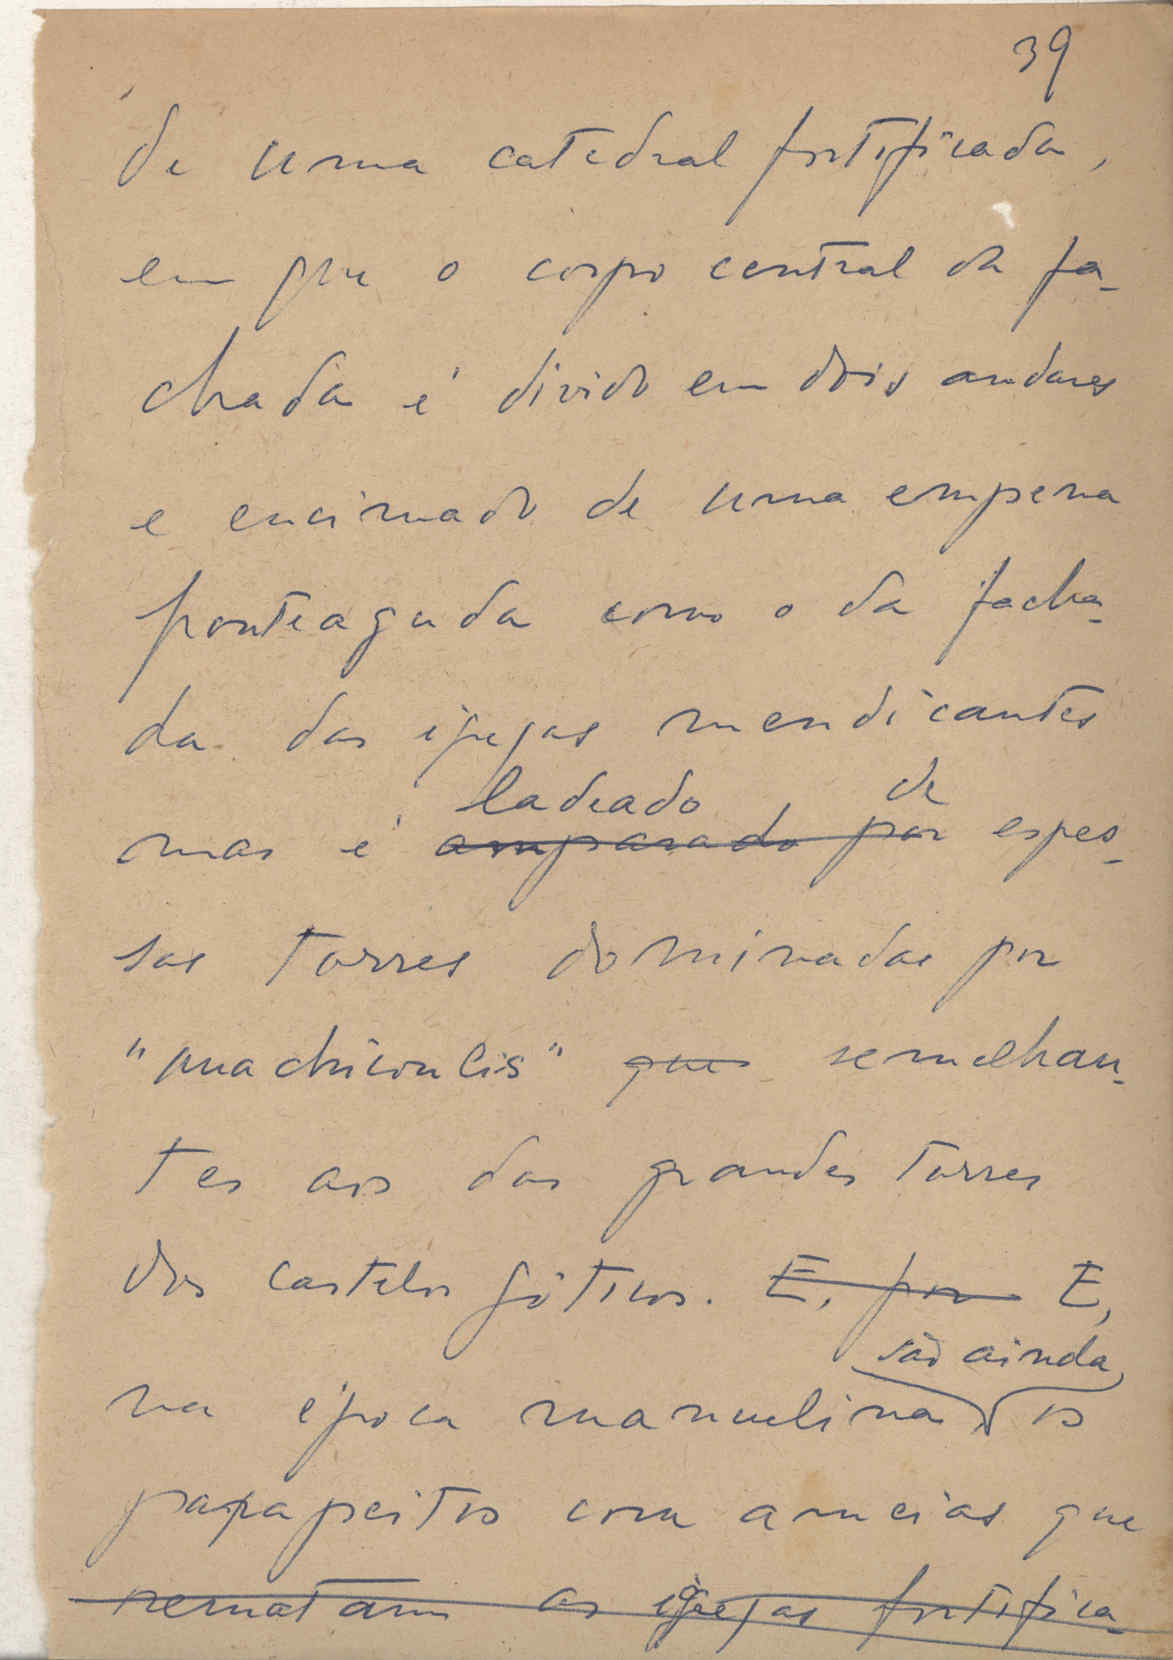 39
de uma catedral fortificada,
em que o corpo central da fa-
chada é divido em dois andares
e encimado de uma empena
ponteaguda como o da facha-
da das igrejas mendicantes
ladeado de
mas é amparado por espes-
sas torres dominadas por
"machicoulis" que semelhan-
tes aos das grandes torres
dos castelos góticos. E, por E,
são ainda
na época manuelina, os
parapeitos com ameias que
rematam as igrejas fortifica-